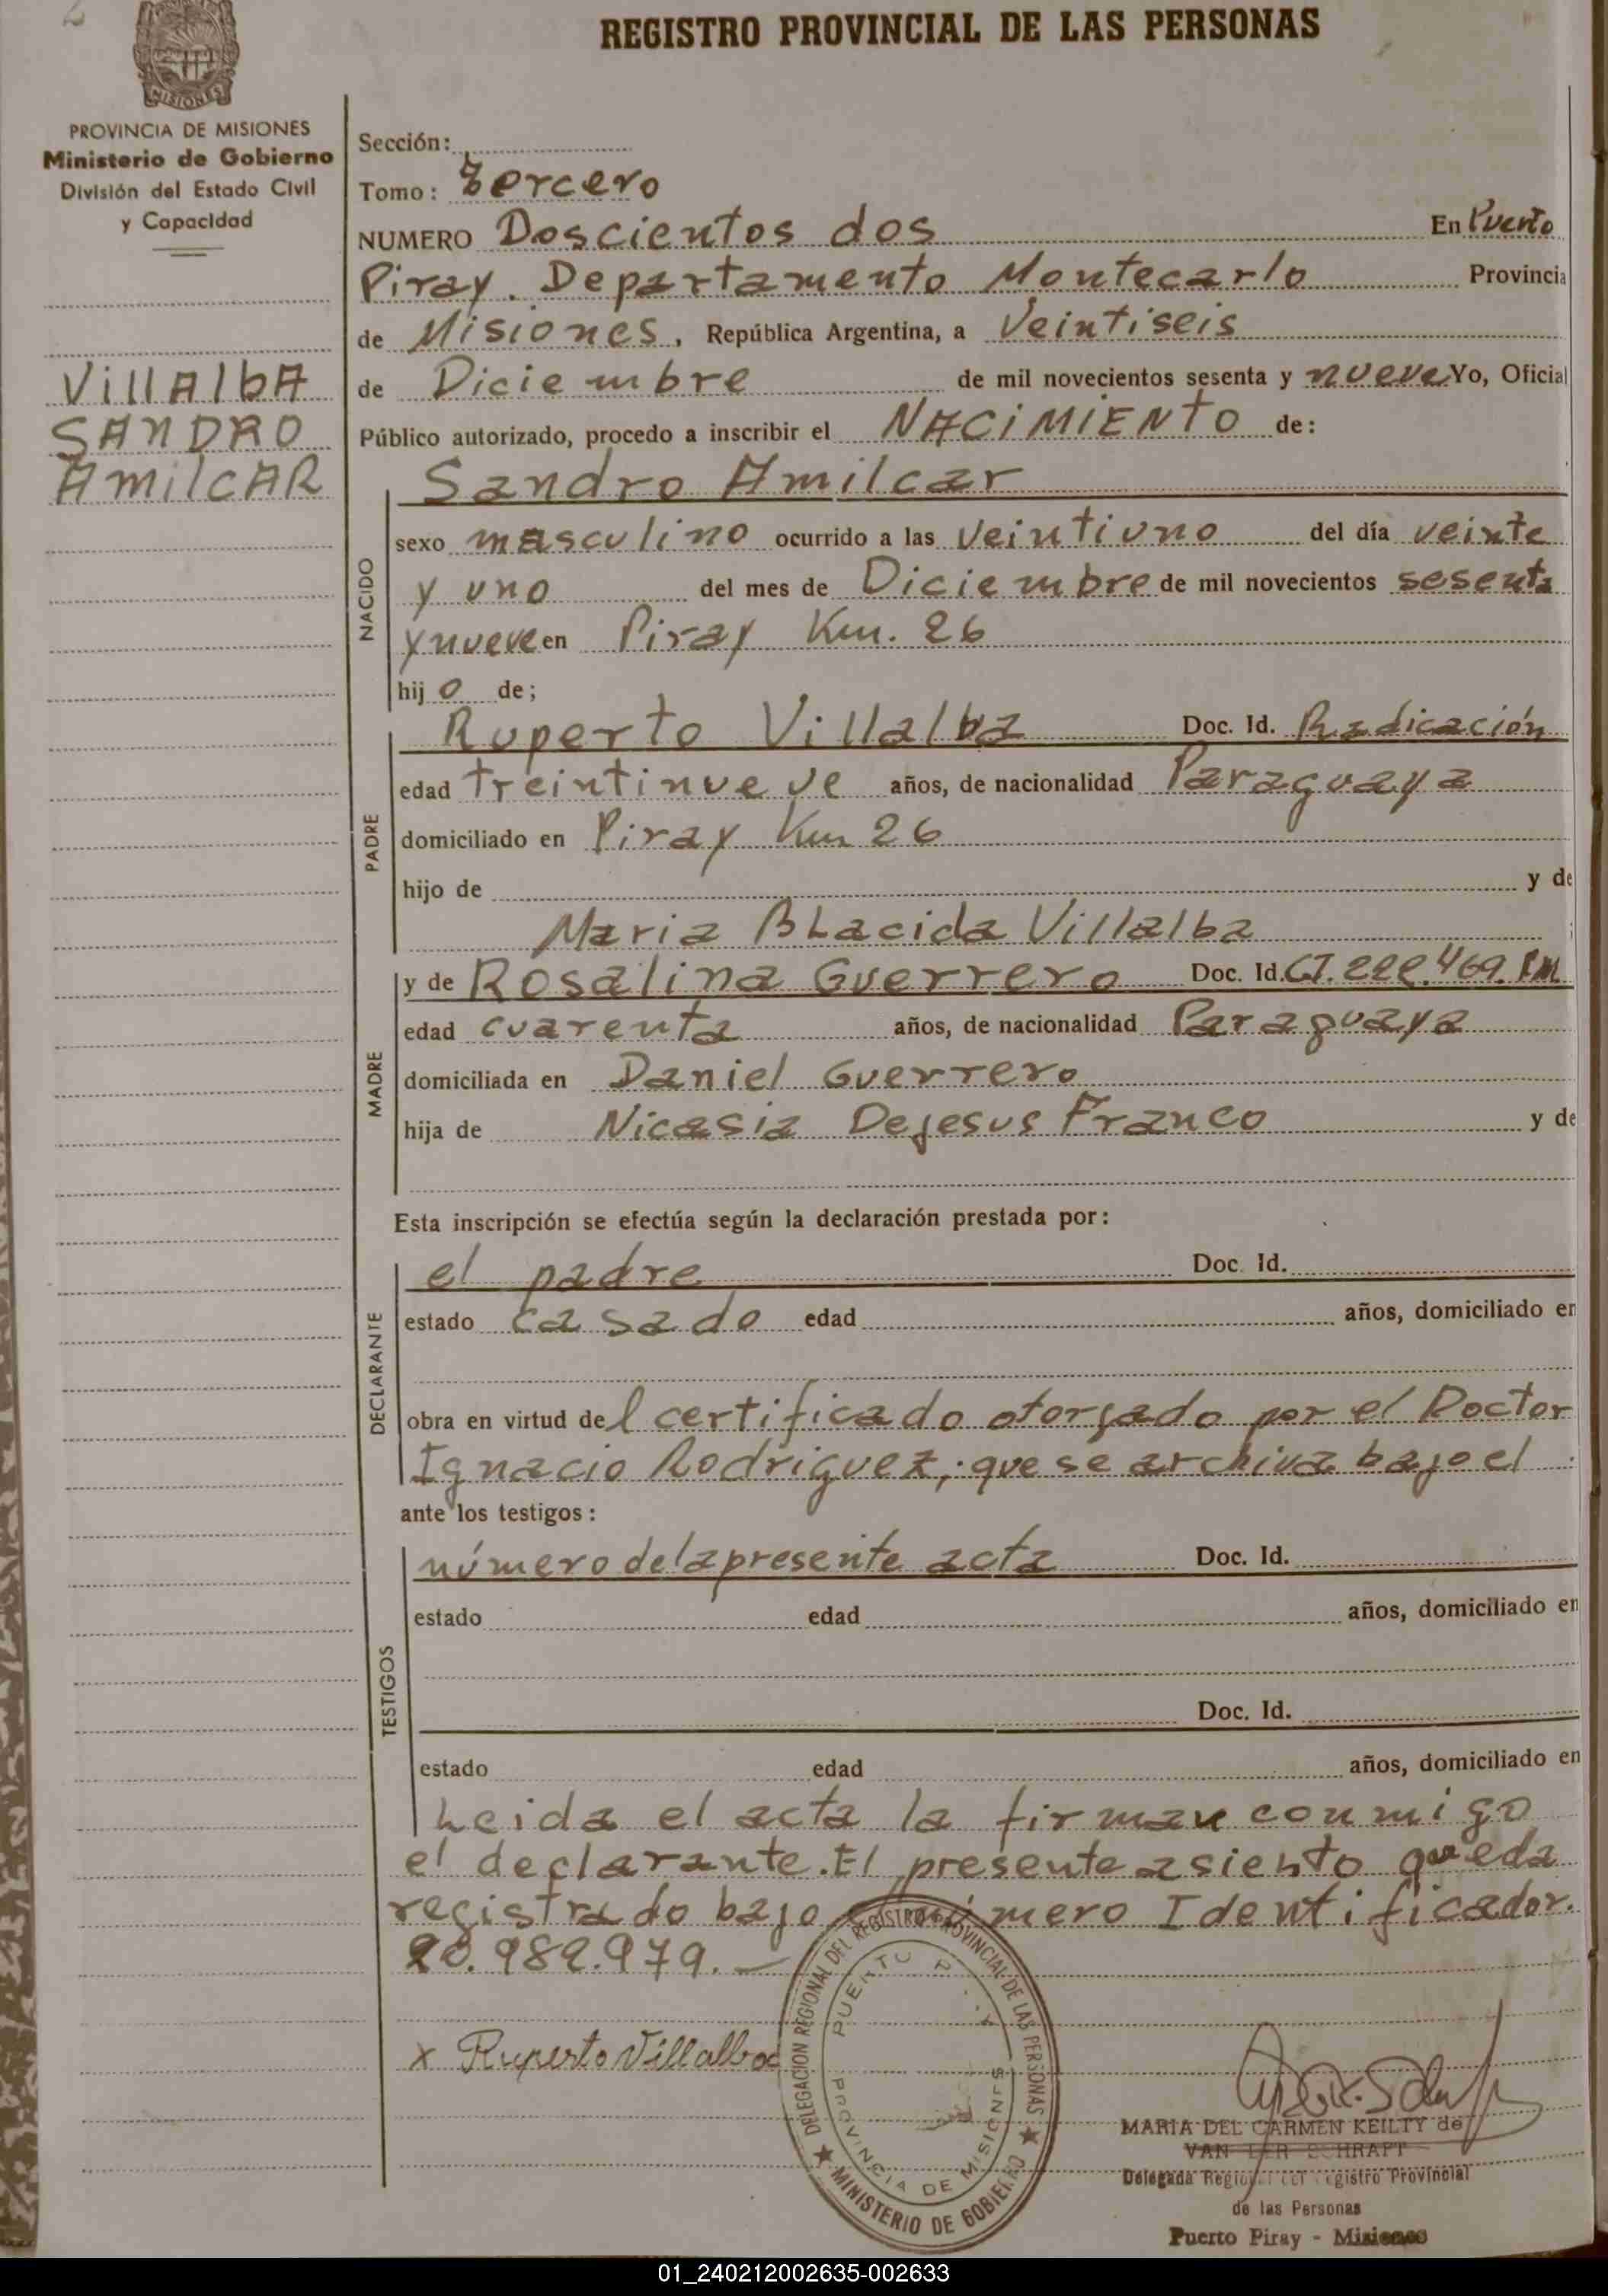 2
REGISTRO PROVINCIAL DE LAS PERSONAS
MISIONES
PROVINCIA DE MISIONES
Ministerio de Gobierno
División del Estado Civil
y Capacidad
VillAlbA
SANDRO
AmilCAR
Sección:
Tomo: Tercero
NUMERO Doscientos dos En Puerto
Piray. Departamento Montecarlo Provincia
de Misiones, República Argentina, a Veintiseis
de Diciembre de mil novecientos sesenta y nueve Yo, Oficial
Público autorizado, procedo a inscribir el NACIMIENTO de:
NACIDO
Sandro Amilcar
sexo masculino ocurrido a las Veintiuno del día veinte
y uno del mes de Diciembre de mil novecientos sesenta
y nueve en Piray Km. 26
hijo de;
PADRE
Ruperto Villalba Doc. Id. Radicación
edad treintinueve años, de nacionalidad Paraguaya
domiciliado en Piray Km 26
hijo de y de
Maria BLacida Villalba
MADRE
y de Rosalina Guerrero Doc. Id. CI. 222.469. PM
edad cuarenta años, de nacionalidad Paraguaya
domiciliada en Daniel Guerrero
hija de Nicasia Dejesus Franco y de
Esta inscripción se efectúa según la declaración prestada por:
DECLARANTE
el padre Doc. Id.
estado casado edad años, domiciliado en
obra en virtud del certificado otorgado por el Doctor
Ignacio Rodriguez, que se archiva bajo el
ante los testigos:
TESTIGOS
número de la presente acta Doc. Id.
estado edad años, domiciliado en
Doc. Id.
estado edad años, domiciliado en
Leida el acta la firman conmigo
el declarante. El presente asiento queda
registrado bajo el número Identificador.
20.982.979.—
x Ruperto Villalba
DELEGACION REGIONAL DEL REGISTRO PROVINCIAL DE LAS PERSONAS
MINISTERIO DE GOBIERNO
PROVINCIA DE MISIONES
MARIA DEL CARMEN KEILTY de
VAN DER SCHRAFT
Delegada Regional del Registro Provincial
de las Personas
Puerto Piray - Misiones
01_240212002635-002633